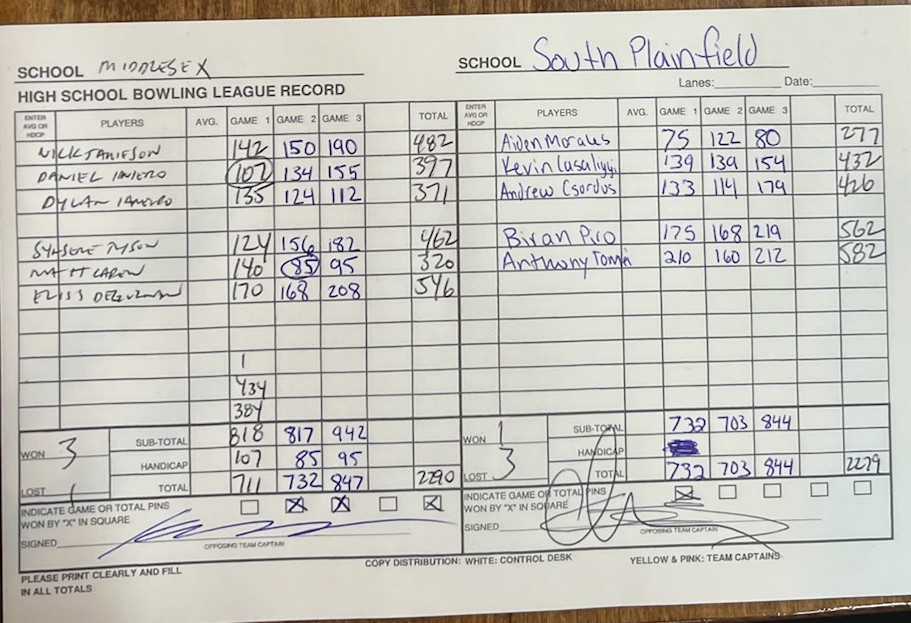 SCHOOL MIDDLESEX
SCHOOL South Plainfield
Lanes: Date:
HIGH SCHOOL BOWLING LEAGUE RECORD
ENTER AVG OR HDCP PLAYERS AVG. GAME 1 GAME 2 GAME 3 TOTAL ENTER AVG OR HDCP PLAYERS AVG. GAME 1 GAME 2 GAME 3 TOTAL
NICK JAMIESON 142 150 190 482 Aiden Morales 75 122 80 277
DANIEL 107 134 155 397 Kevin 139 139 154 432
DYLAN 135 124 112 371 Andrew Csordos 133 114 179 426
TYSON 124 156 182 462 Biran Piro 175 168 219 562
MATT CAREW 140 85 95 320 Anthony 210 160 212 582
170 168 208 546
1
434
384
WON 3 SUB-TOTAL 818 817 942 WON 1 SUB-TOTAL 732 703 844
HANDICAP 107 85 95 HANDICAP
LOST 1 TOTAL 711 732 847 2290 LOST 3 TOTAL 732 703 844 2279
INDICATE GAME OR TOTAL PINS WON BY "X" IN SQUARE X X X INDICATE GAME OR TOTAL PINS WON BY "X" IN SQUARE X
SIGNED OPPOSING TEAM CAPTAIN SIGNED OPPOSING TEAM CAPTAIN
PLEASE PRINT CLEARLY AND FILL IN ALL TOTALS
COPY DISTRIBUTION: WHITE: CONTROL DESK YELLOW & PINK: TEAM CAPTAINS